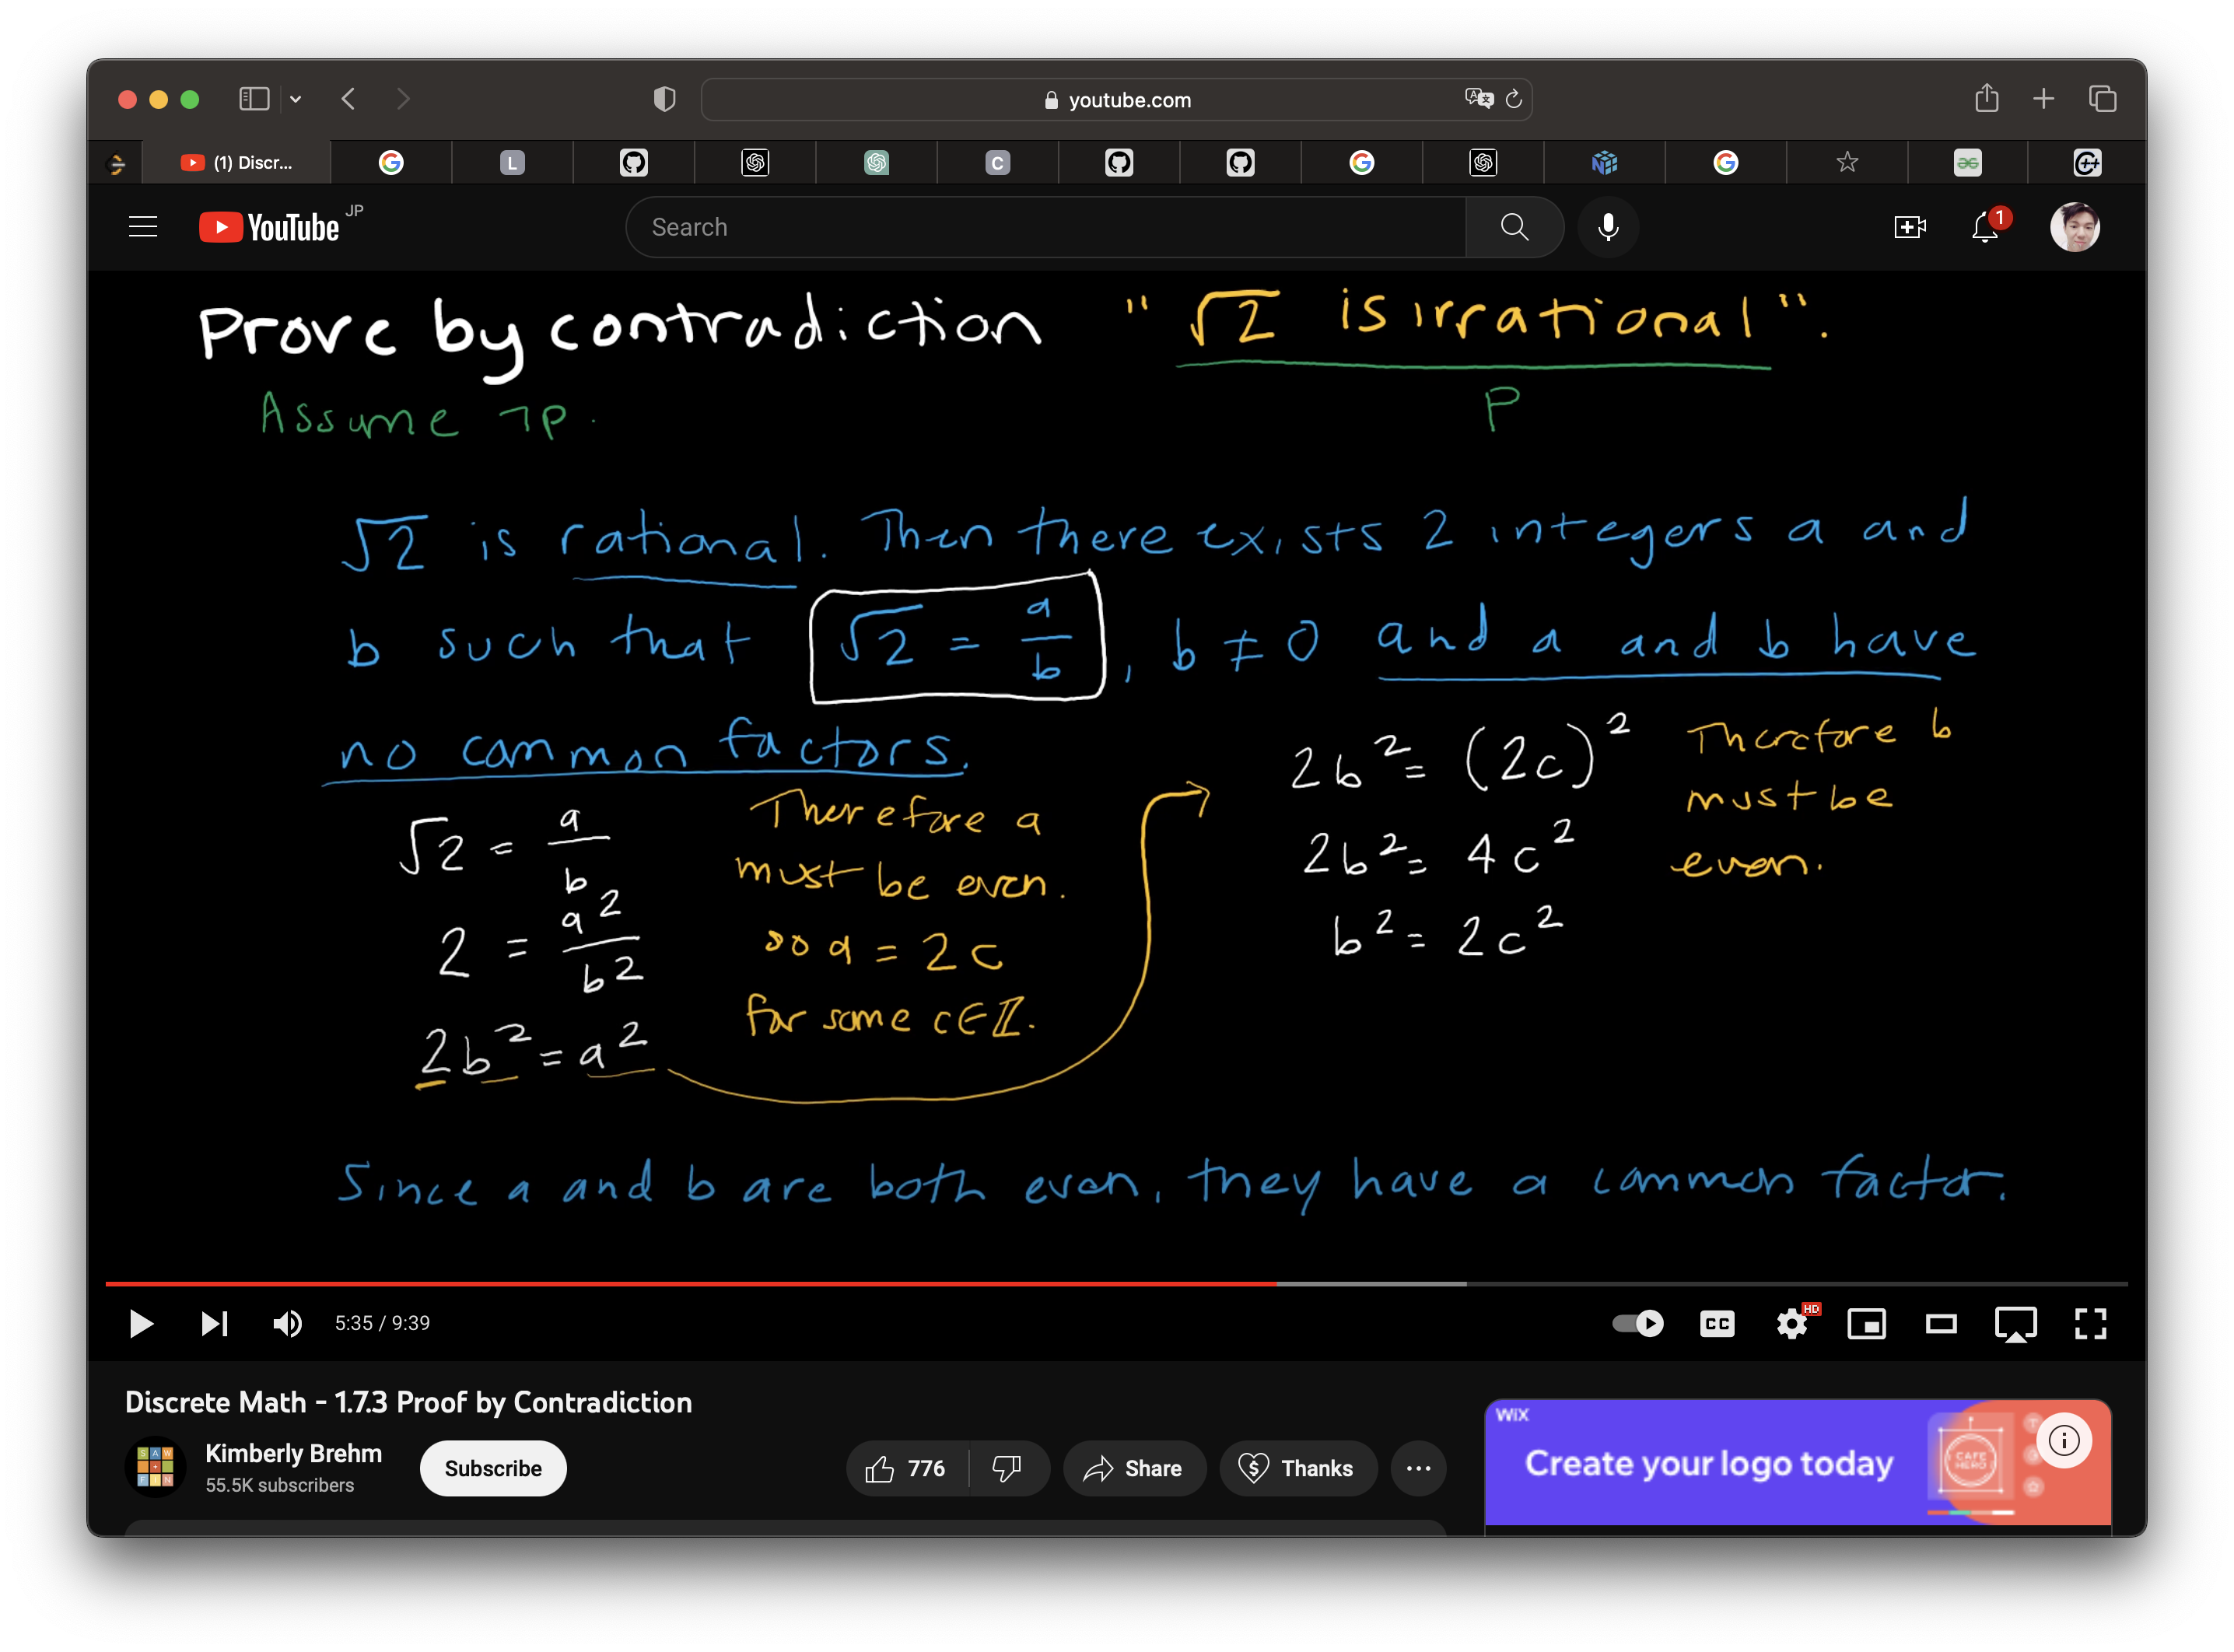 youtube.com
(1) Discr...
L
C
YouTube JP
Search
1
Prove by contradiction "√2 is irrational".
Assume ¬p.
P
√2 is rational. Then there exists 2 integers a and
b such that √2 = a/b, b ≠ 0 and a and b have
no common factors.
√2 = a/b
2 = a²/b²
2b² = a²
Therefore a
must be even.
so a = 2c
for some c∈ℤ.
2b² = (2c)²
2b² = 4c²
b² = 2c²
Therefore b
must be
even.
Since a and b are both even, they have a common factor.
5:35 / 9:39
CC
HD
Discrete Math - 1.7.3 Proof by Contradiction
Kimberly Brehm
55.5K subscribers
Subscribe
776
Share
Thanks
WiX
Create your logo today
CAFE
HERO